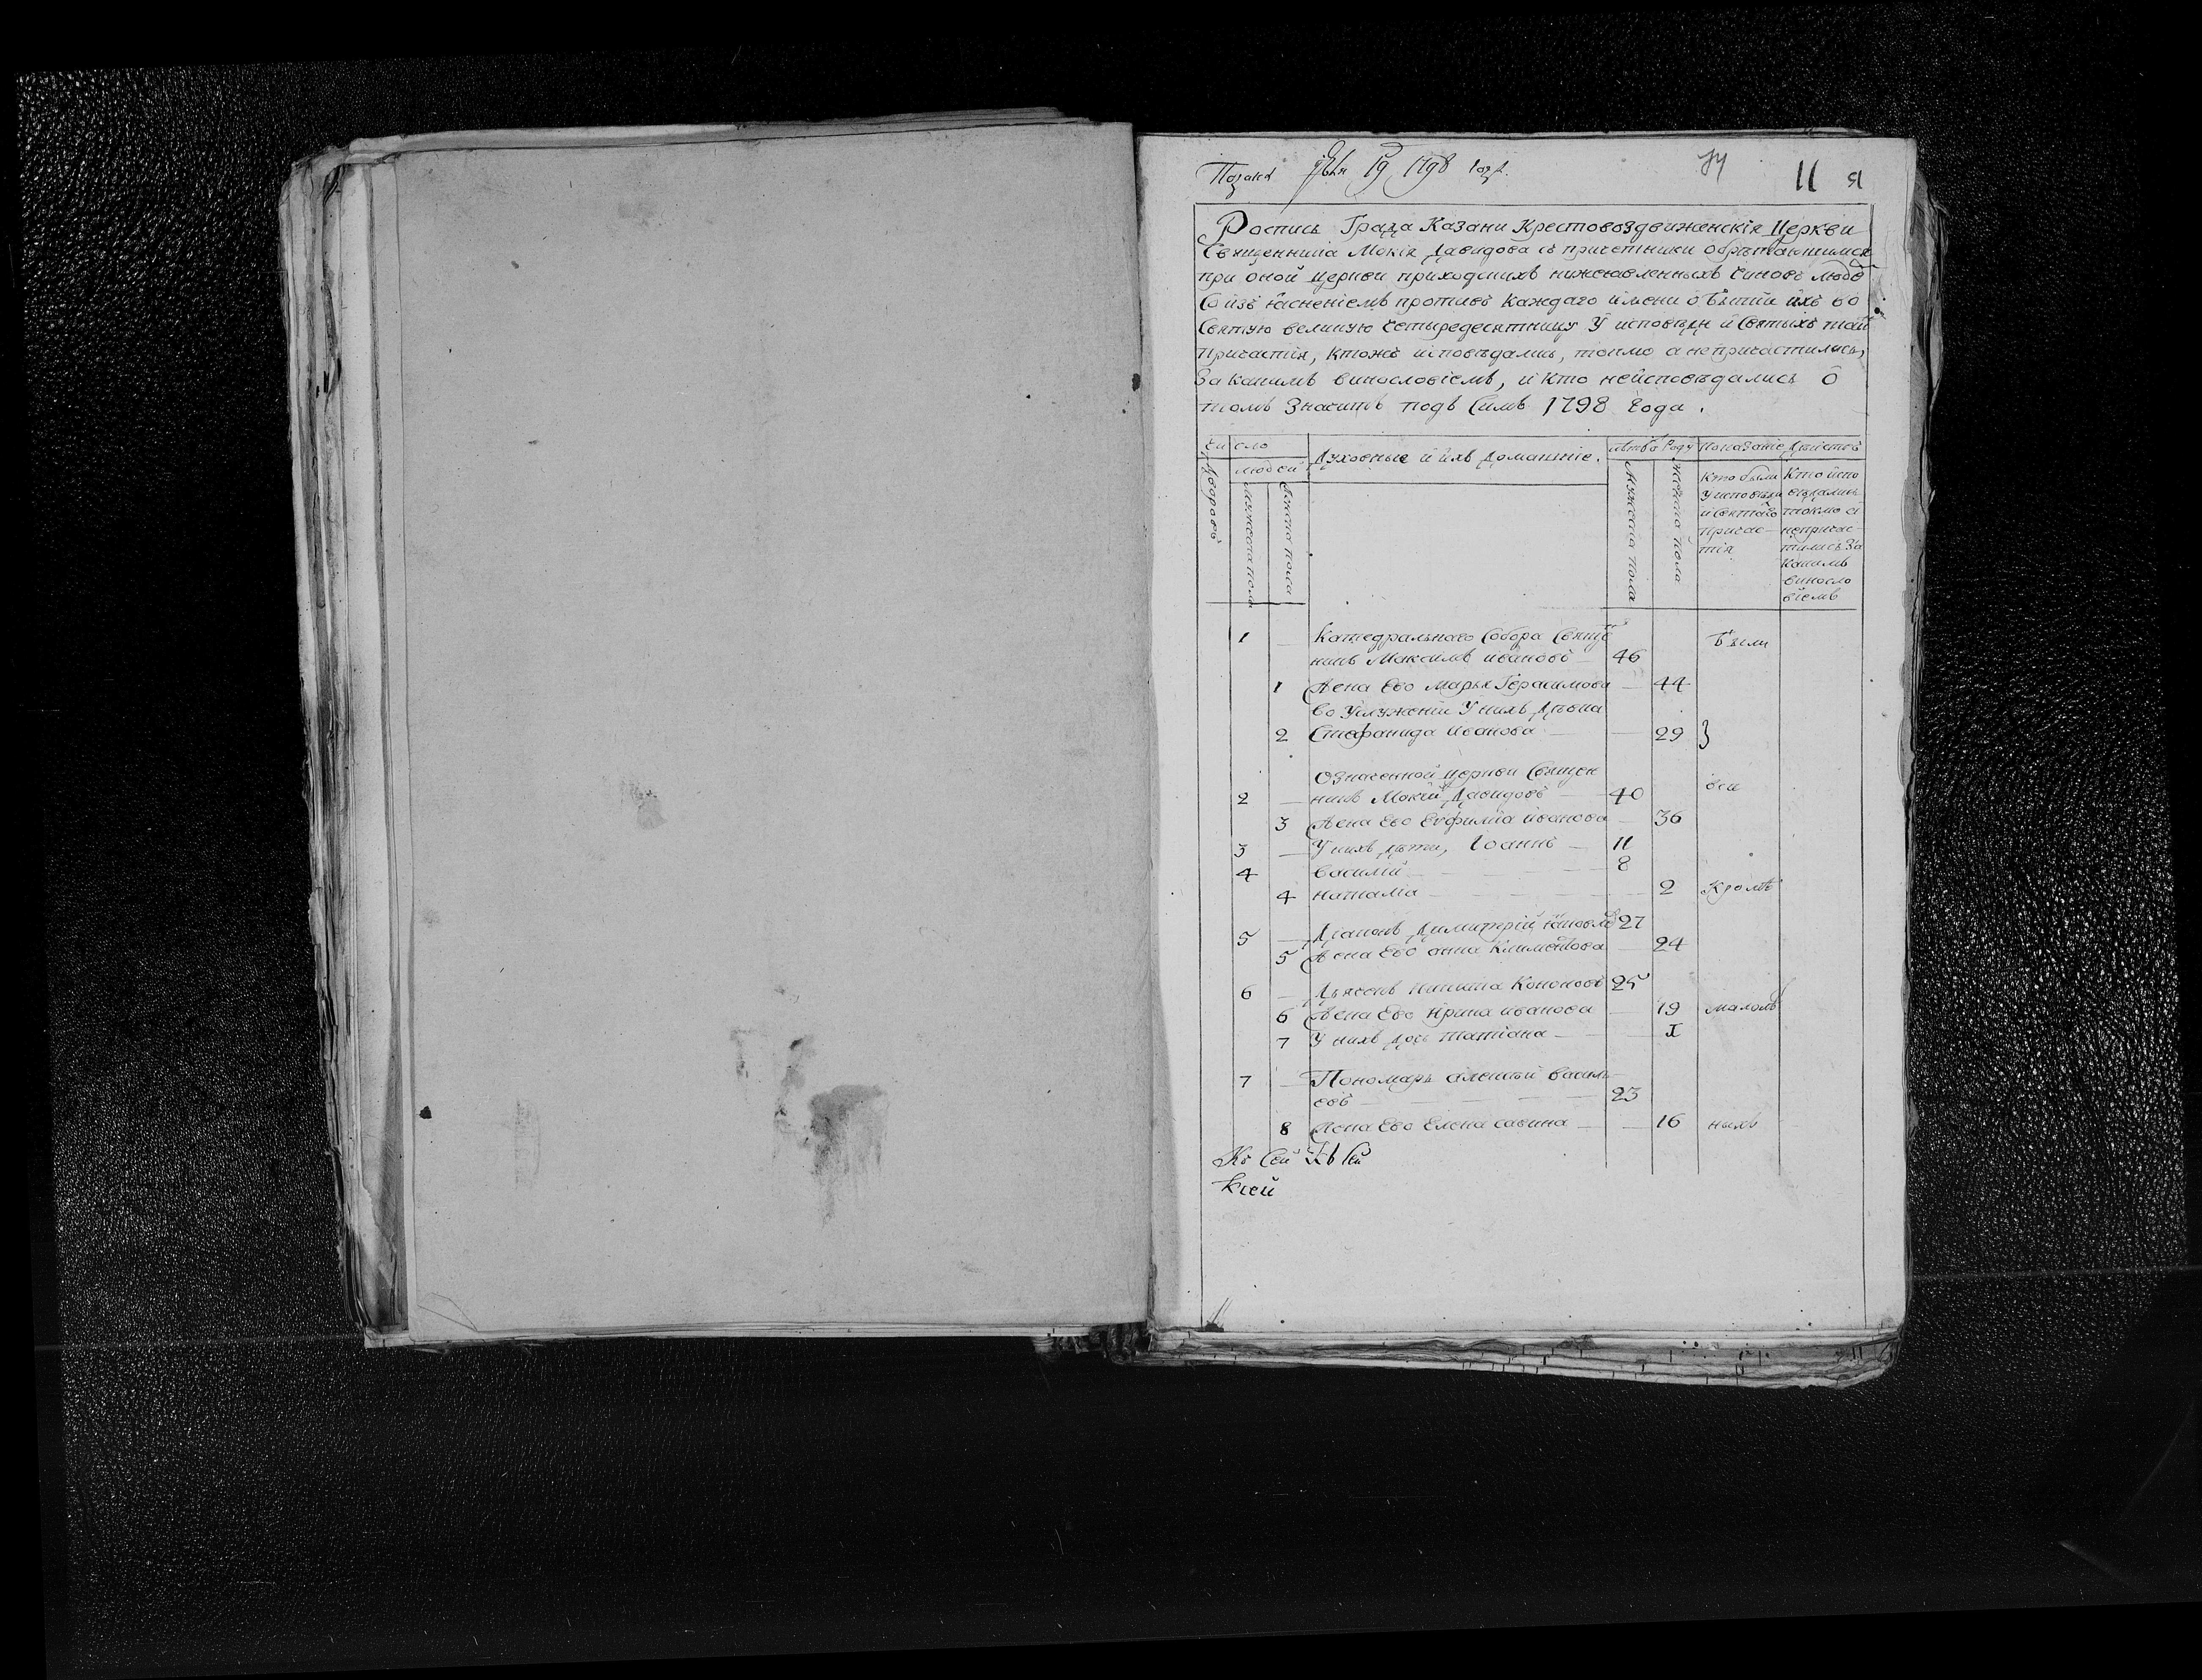 Подана 19 1798 года.
11
Роспись Града Казани Крестовоздвиженскія Церкви
Священника Мокія Давидова съ причетники обрѣтающимся
при оной церкви приходскихъ нижеявленныхъ чиновъ люде
со изъясненіемъ противъ каждаго имени о бытіи ихъ во
святую великую четыредесятницу у исповѣди и святыхъ таи
причастія, ктожъ исповѣдались, токмо а непричастились,
за какимъ винословіемъ, и кто неисповѣдались о
томъ значитъ подъ симъ 1798 года.
Число Духовные и ихъ домашніе. Лѣта роду Показаніе дѣйствъ
Дворовъ людей
мужеска пола женска пола мужеска пола женска пола
Кто были у исповѣди и святаго причас-тія
Кто испо вѣдались токмо а непричас-тились за какимъ виносло віемъ
1 — Катедральнаго Собора Свяще
никъ Максимъ Ивановъ — 46 были
1 Жена Ево Марья Герасимова — 44
Во услуженіи у нихъ дѣвка
2 Стефанида Иванова — 29
Означенной церкви Священ
2 — никъ Мокій Давидовъ — 40 вси
3 Жена Ево Евфимія Иванова — 36
3 — У нихъ дѣти, Іоаннъ — 11
4 Василій — 8
4 Наталіа — 2 Кромѣ
5 — Діаконъ Димитрій Яковле 27
5 Жена Ево Анна Климентова — 24
6 — Дьячекъ Никита Кононовъ 25
6 Жена Ево Ирина Иванова — 19 малолѣ
7 У нихъ дочь Татіана — 1
7 — Пономарь Алексѣй Василь
евъ — 23
8 Жена Ево Елена Савина — 16 ныхъ
Къ Сей Къ Сей
Ксей